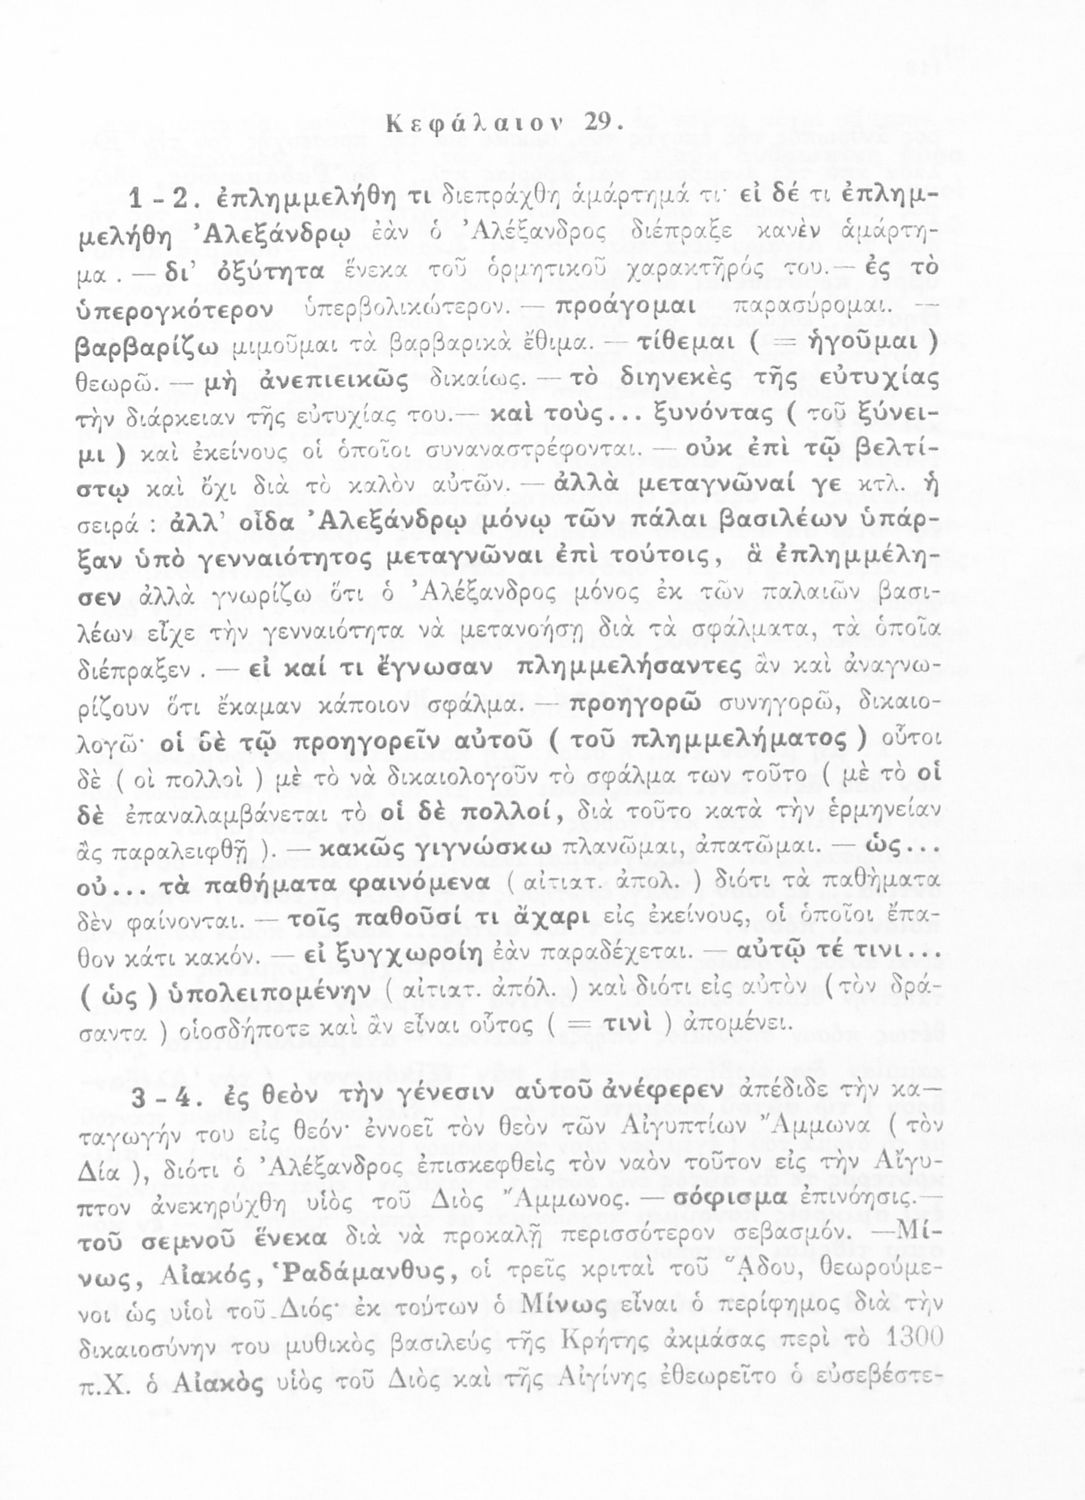 Κεφάλαιον 29.
1 - 2. ἐπλημμελήθη τι διεπράχθη ἁμάρτημά τι· εἰ δέ τι ἐπλημ-
μελήθη Ἀλεξάνδρῳ ἐὰν ὁ Ἀλέξανδρος διέπραξε κανὲν ἁμάρτη-
μα . — δι’ ὀξύτητα ἕνεκα τοῦ ὁρμητικοῦ χαρακτῆρός του.— ἐς τὸ
ὑπερογκότερον ὑπερβολικώτερον. — προάγομαι παρασύρομαι. —
βαρβαρίζω μιμοῦμαι τὰ βαρβαρικὰ ἔθιμα. — τίθεμαι ( = ἡγοῦμαι )
θεωρῶ. — μὴ ἀνεπιεικῶς δικαίως. — τὸ διηνεκὲς τῆς εὐτυχίας
τὴν διάρκειαν τῆς εὐτυχίας του.— καὶ τοὺς... ξυνόντας ( τοῦ ξύνει-
μι ) καὶ ἐκείνους οἱ ὁποῖοι συναναστρέφονται. — οὐκ ἐπὶ τῷ βελτί-
στῳ καὶ ὄχι διὰ τὸ καλὸν αὐτῶν. — ἀλλὰ μεταγνῶναί γε κτλ. ἡ
σειρά : ἀλλ’ οἶδα Ἀλεξάνδρῳ μόνῳ τῶν πάλαι βασιλέων ὑπάρ-
ξαν ὑπὸ γενναιότητος μεταγνῶναι ἐπὶ τούτοις, ἃ ἐπλημμέλη-
σεν ἀλλὰ γνωρίζω ὅτι ὁ Ἀλέξανδρος μόνος ἐκ τῶν παλαιῶν βασι-
λέων εἶχε τὴν γενναιότητα νὰ μετανοήσῃ διὰ τὰ σφάλματα, τὰ ὁποῖα
διέπραξεν . — εἰ καί τι ἔγνωσαν πλημμελήσαντες ἂν καὶ ἀναγνω-
ρίζουν ὅτι ἔκαμαν κάποιον σφάλμα. — προηγορῶ συνηγορῶ, δικαιο-
λογῶ· οἱ δὲ τῷ προηγορεῖν αὐτοῦ ( τοῦ πλημμελήματος ) οὗτοι
δὲ ( οἱ πολλοὶ ) μὲ τὸ νὰ δικαιολογοῦν τὸ σφάλμα των τοῦτο ( μὲ τὸ οἱ
δὲ ἐπαναλαμβάνεται τὸ οἱ δὲ πολλοί, διὰ τοῦτο κατὰ τὴν ἑρμηνείαν
ἂς παραλειφθῇ ). — κακῶς γιγνώσκω πλανῶμαι, ἀπατῶμαι. — ὡς...
οὐ... τὰ παθήματα φαινόμενα ( αἰτιατ. ἀπολ. ) διότι τὰ παθήματα
δὲν φαίνονται. — τοῖς παθοῦσί τι ἄχαρι εἰς ἐκείνους, οἱ ὁποῖοι ἔπα-
θον κάτι κακόν. — εἰ ξυγχωροίη ἐὰν παραδέχεται. — αὐτῷ τέ τινι...
( ὡς ) ὑπολειπομένην ( αἰτιατ. ἀπόλ. ) καὶ διότι εἰς αὐτὸν (τὸν δρά-
σαντα ) οἱοσδήποτε καὶ ἂν εἶναι οὗτος ( = τινὶ ) ἀπομένει.
3 - 4. ἐς θεὸν τὴν γένεσιν αὑτοῦ ἀνέφερεν ἀπέδιδε τὴν κα—
ταγωγήν του εἰς θεόν· ἐννοεῖ τὸν θεὸν τῶν Αἰγυπτίων Ἄμμωνα ( τὸν
Δία ), διότι ὁ Ἀλέξανδρος ἐπισκεφθεὶς τὸν ναὸν τοῦτον εἰς τὴν Αἴγυ-
πτον ἀνεκηρύχθη υἱὸς τοῦ Διὸς Ἄμμωνος. — σόφισμα ἐπινόησις.—
τοῦ σεμνοῦ ἕνεκα διὰ νὰ προκαλῇ περισσότερον σεβασμόν. —Μί-
νως, Αἰακός, Ῥαδάμανθυς, οἱ τρεῖς κριταὶ τοῦ ᾍδου, θεωρούμε-
νοι ὡς υἱοὶ τοῦ Διός· ἐκ τούτων ὁ Μίνως εἶναι ὁ περίφημος διὰ τὴν
δικαιοσύνην του μυθικὸς βασιλεύς τῆς Κρήτης ἀκμάσας περὶ τὸ 1300
π.Χ. ὁ Αἰακὸς υἱὸς τοῦ Διὸς καὶ τῆς Αἰγίνης ἐθεωρεῖτο ὁ εὐσεβέστε-